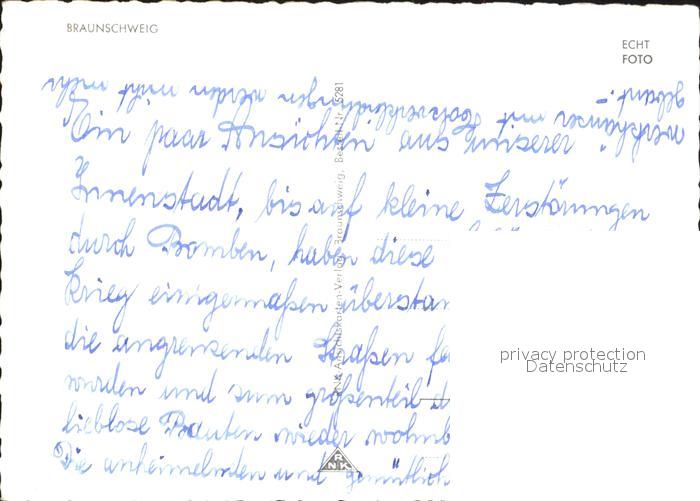 BRAUNSCHWEIG
ECHT
FOTO
Ein paar Ansichten aus unserer
Innenstadt, bis auf kleine Zerstörungen
durch Bomben, haben diese
Krieg einigermaßen überstan
die angrenzenden Straßen
wurden und zum größenteil d
lieblose Bauten wieder wohnb
Die anheimelnden und gemütlich
werden nicht mehr
gebaut.
RNK Ansichtskarten-Verlag Braunschweig, Bestell-Nr. 5281
RNK
privacy protection
Datenschutz